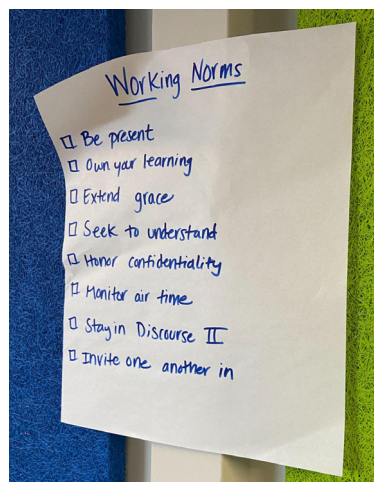 Working Norms
Be present
Own your learning
Extend grace
Seek to understand
Honor confidentiality
Monitor air time
Stay in Discourse II
Invite one another in